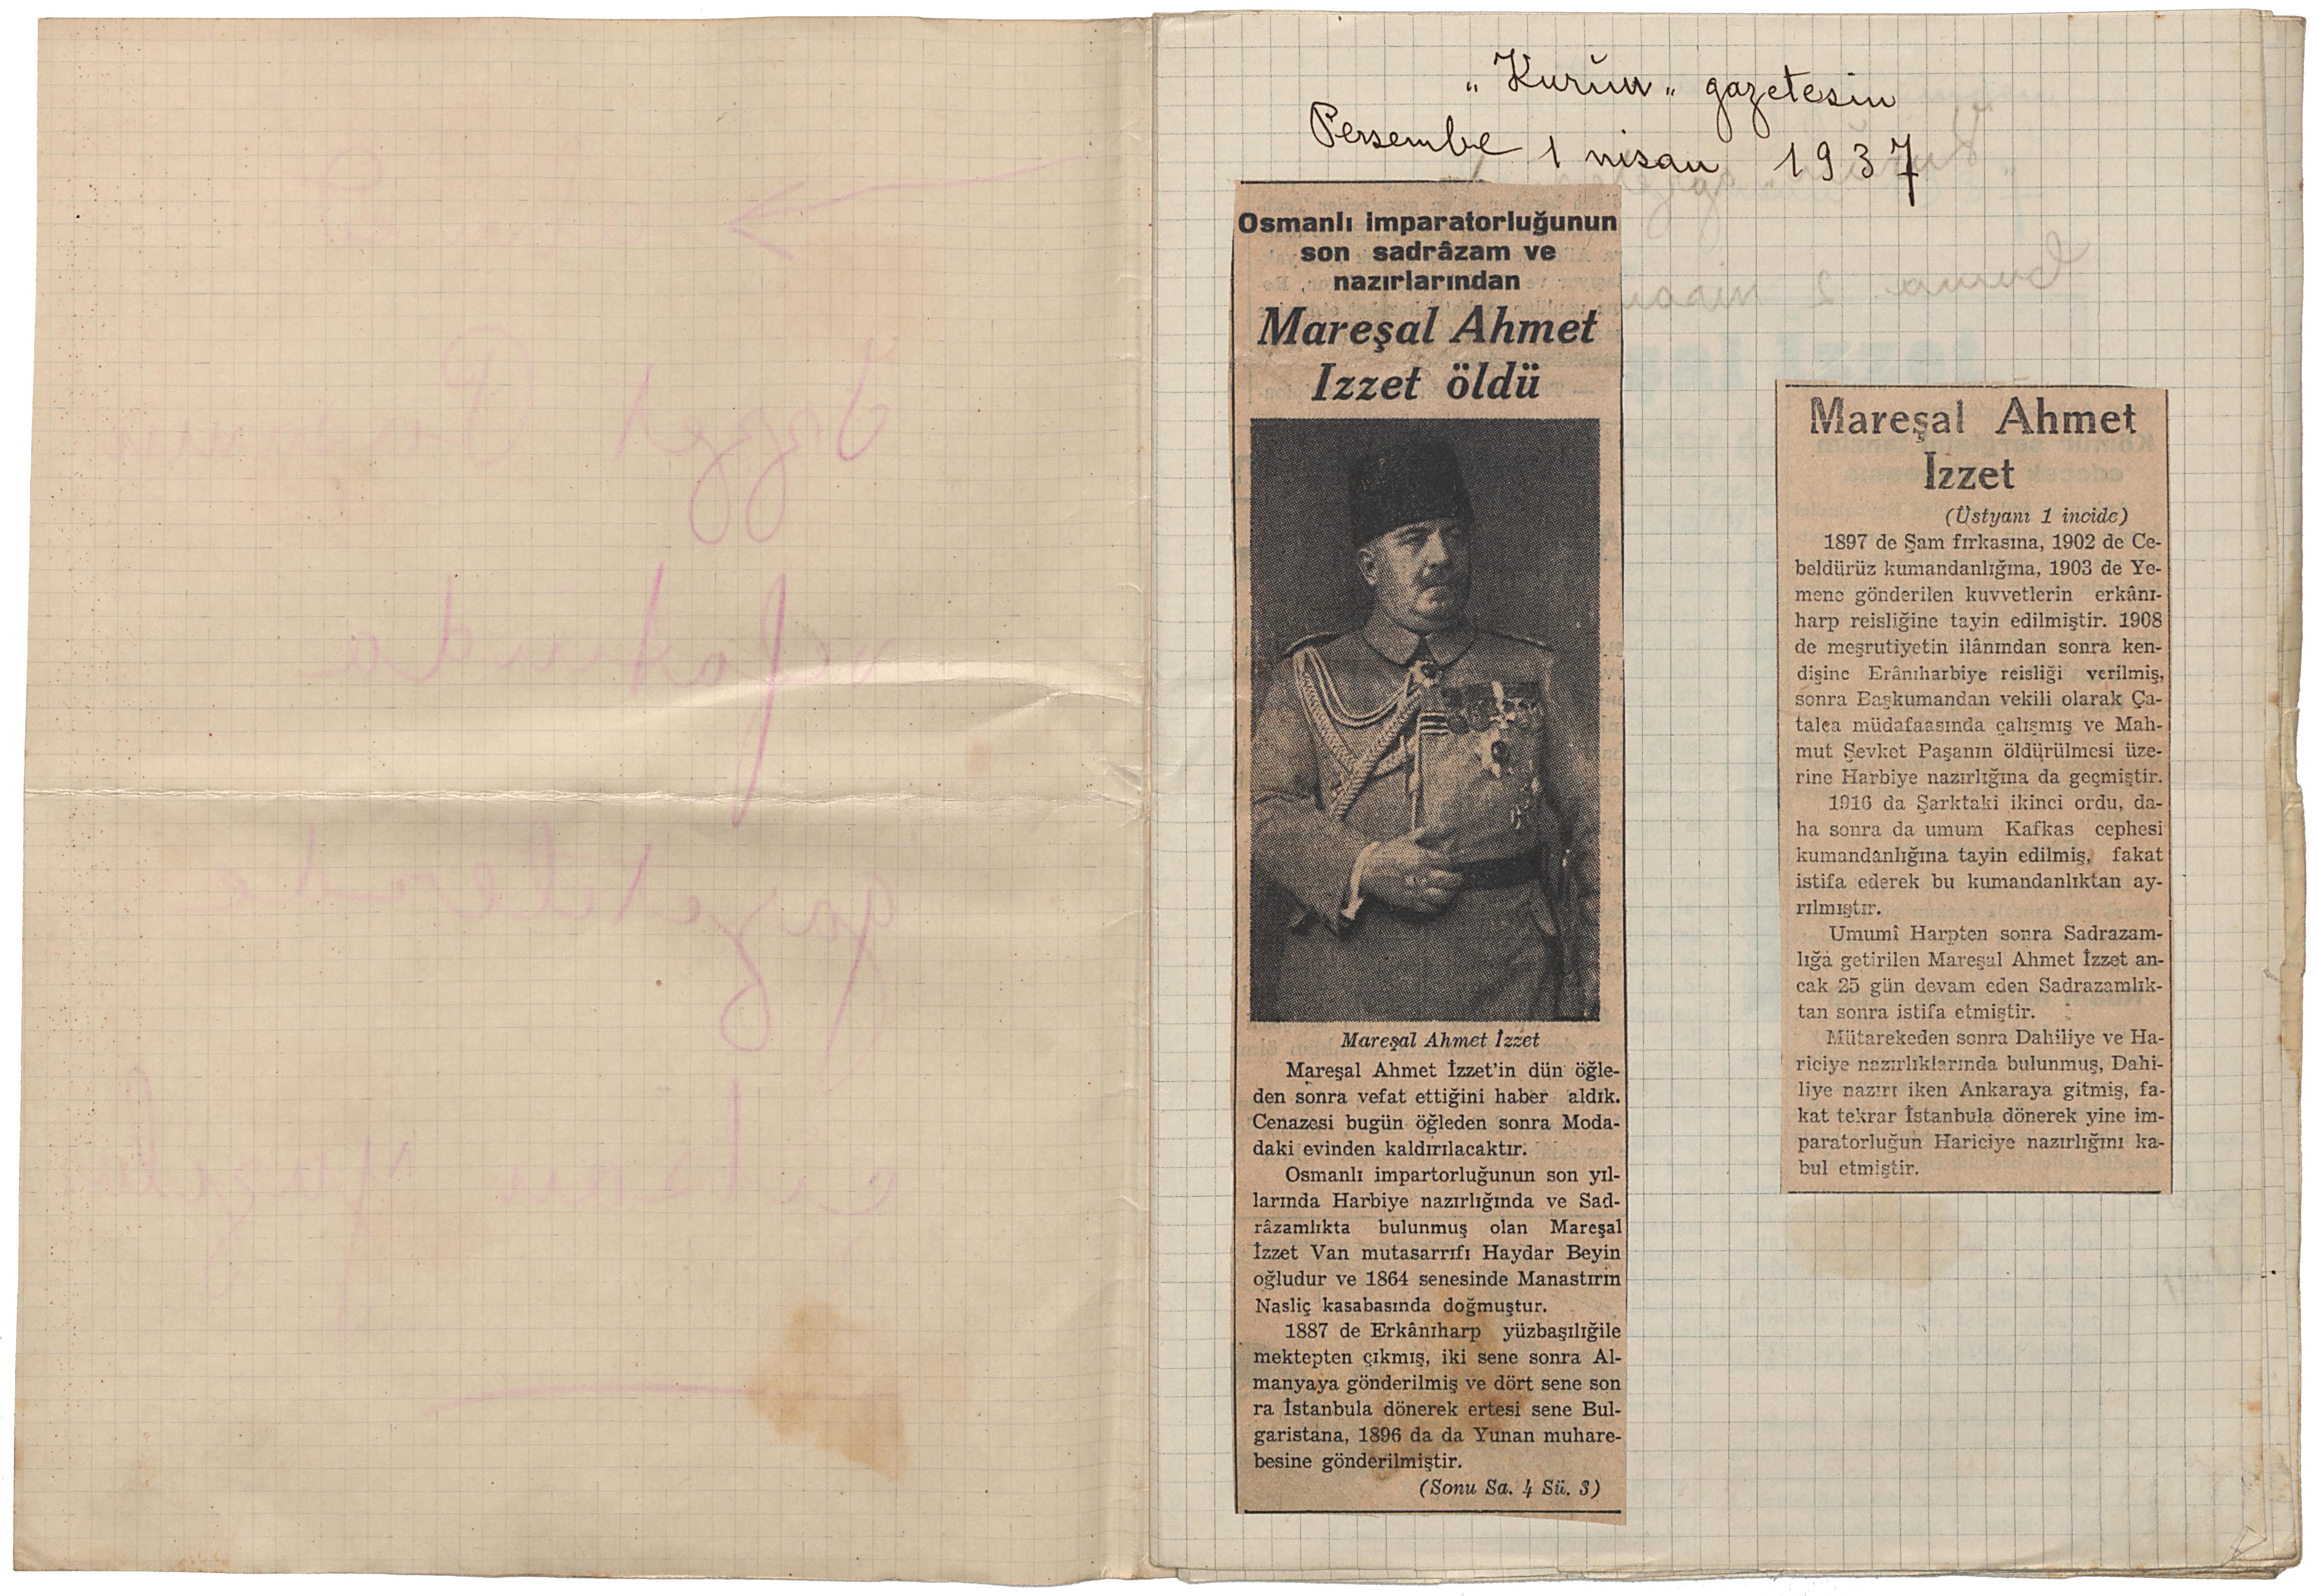 „Kurun„ gazetesin
Persembe 1 nisan 1937
Osmanlı imparatorluğunun
son sadrâzam ve
nazırlarından
Mareşal Ahmet
Izzet öldü
Mareşal Ahmet İzzet
Mareşal Ahmet İzzet'in dün öğle-
den sonra vefat ettiğini haber aldık.
Cenazesi bugün öğleden sonra Moda-
daki evinden kaldırılacaktır.
Osmanlı impartorluğunun son yıl-
larında Harbiye nazırlığında ve Sad-
râzamlıkta bulunmuş olan Mareşal
İzzet Van mutasarrıfı Haydar Beyin
oğludur ve 1864 senesinde Manastırın
Nasliç kasabasında doğmuştur.
1887 de Erkânıharp yüzbaşılığile
mektepten çıkmış, iki sene sonra Al-
manyaya gönderilmiş ve dört sene son
ra İstanbula dönerek ertesi sene Bul-
garistana, 1896 da da Yunan muhare-
besine gönderilmiştir.
(Sonu Sa. 4 Sü. 3)
Mareşal Ahmet
İzzet
(Üstyanı 1 incide)
1897 de Şam fırkasına, 1902 de Ce-
beldürüz kumandanlığına, 1903 de Ye-
mene gönderilen kuvvetlerin erkânı-
harp reisliğine tayin edilmiştir. 1908
de meşrutiyetin ilânından sonra ken-
dişine Erânıharbiye reisliği verilmiş,
sonra Başkumandan vekili olarak Ça-
talca müdafaasında çalışmış ve Mah-
mut Şevket Paşanın öldürülmesi üze-
rine Harbiye nazırlığına da geçmiştir.
1916 da Şarktaki ikinci ordu, da-
ha sonra da umum Kafkas cephesi
kumandanlığına tayin edilmiş, fakat
istifa ederek bu kumandanlıktan ay-
rılmıştır.
Umumî Harpten sonra Sadrazam-
lığa getirilen Mareşal Ahmet İzzet an-
cak 25 gün devam eden Sadrazamlık-
tan sonra istifa etmiştir.
Mütarekeden sonra Dahiliye ve Ha-
riciye nazırlıklarında bulunmuş, Dahi-
liye nazırı iken Ankaraya gitmiş, fa-
kat tekrar İstanbula dönerek yine im-
paratorluğun Hariciye nazırlığını ka-
bul etmiştir.